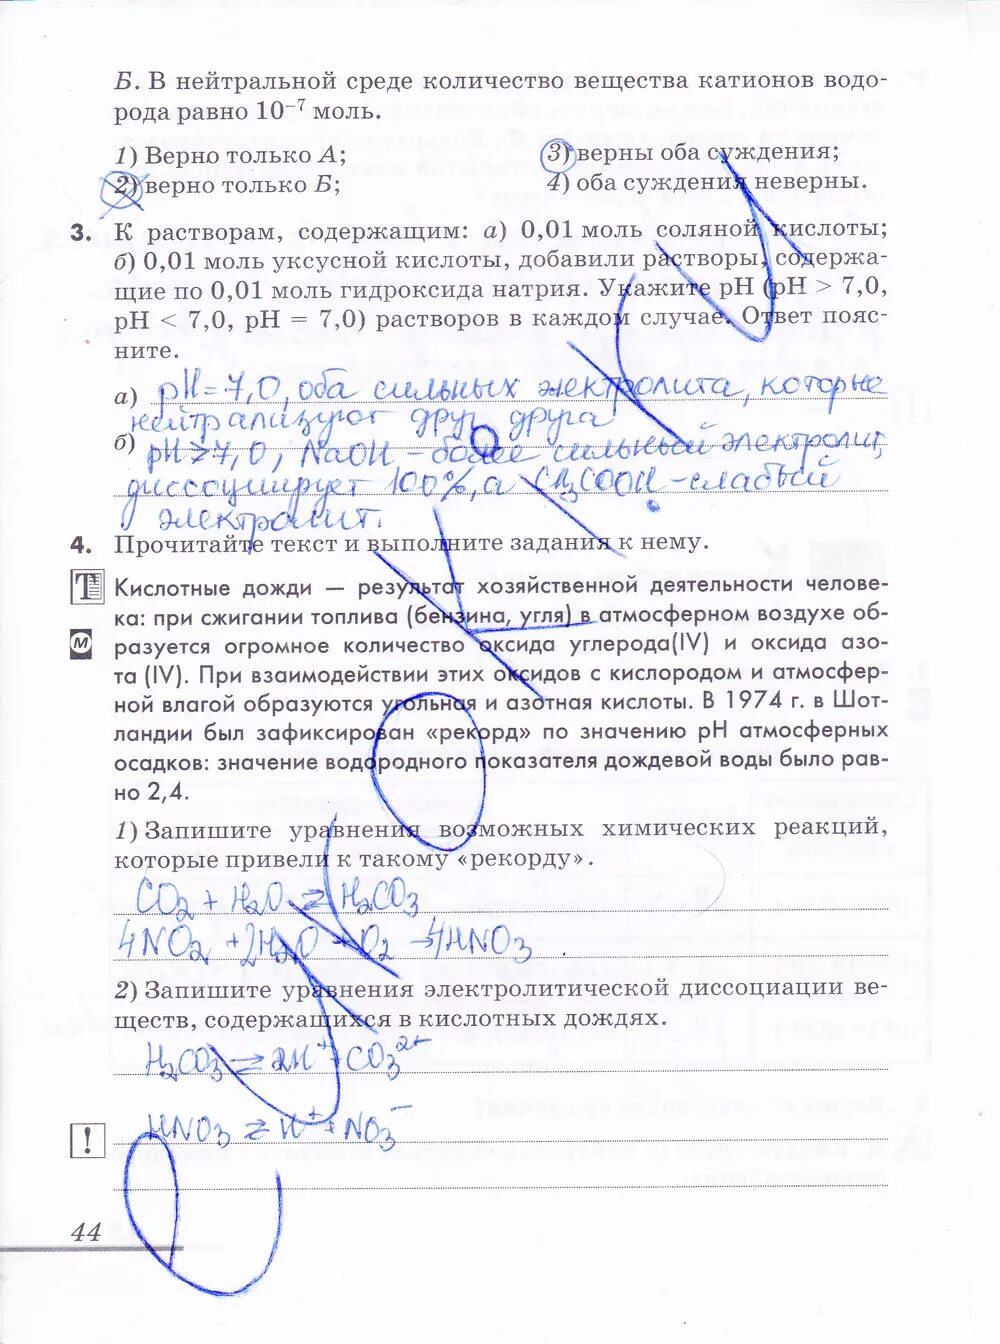 Б. В нейтральной среде количество вещества катионов водо-
рода равно 10⁻⁷ моль.
1) Верно только А;
3) верны оба суждения;
2) верно только Б;
4) оба суждения неверны.
3. К растворам, содержащим: а) 0,01 моль соляной кислоты;
б) 0,01 моль уксусной кислоты, добавили растворы, содержа-
щие по 0,01 моль гидроксида натрия. Укажите рН (рН > 7,0,
рН < 7,0, рН = 7,0) растворов в каждом случае. Ответ пояс-
ните.
а) рН=7,0, оба сильных электролита, которые
нейтрализуют друг друга
б) рН>7,0, NaOH - более сильный электролит,
диссоциирует 100%, а CH3COOH - слабый
электролит.
4. Прочитайте текст и выполните задания к нему.
Т Кислотные дожди — результат хозяйственной деятельности челове-
ка: при сжигании топлива (бензина, угля) в атмосферном воздухе об-
М разуется огромное количество оксида углерода(IV) и оксида азо-
та (IV). При взаимодействии этих оксидов с кислородом и атмосфер-
ной влагой образуются угольная и азотная кислоты. В 1974 г. в Шот-
ландии был зафиксирован «рекорд» по значению рН атмосферных
осадков: значение водородного показателя дождевой воды было рав-
но 2,4.
1) Запишите уравнения возможных химических реакций,
которые привели к такому «рекорду».
CO2 + H2O ⇄ H2CO3
4NO2 + 2H2O + O2 → 4HNO3
2) Запишите уравнения электролитической диссоциации ве-
ществ, содержащихся в кислотных дождях.
H2CO3 ⇄ 2H⁺ + CO3²⁺
! HNO3 ⇄ H⁺ + NO3⁻
44